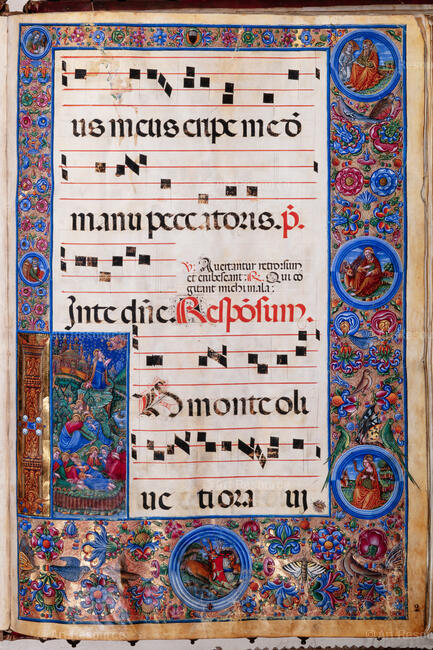 us meus eripe me d̄
manu peccatoris. p̄.
℣. Avertantur retrorsum
et erubescant: ℟. Qui co
gitant michi mala:
Jn te dn̄e. Respōsum.
Jn monte oli
ve ti ora vi
2
© Art Resource